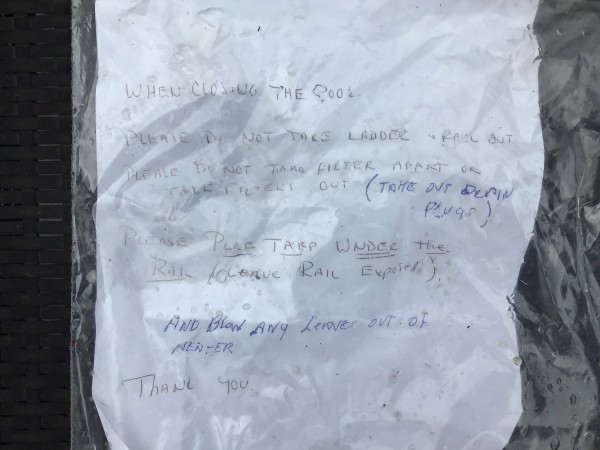 WHEN CLOSING THE POOL
PLEASE DO NOT TAKE LADDER + RAIL OUT
PLEASE DO NOT TAKE FILTER APART OR
TAKE FILTERS OUT (TAKE OUT DRAIN
PLUGS)
PLEASE PLACE TARP UNDER the
RAIL (LEAVE RAIL EXPOSED),
AND BLOW ANY LEAVES OUT OF
HEATER
THANK YOU.